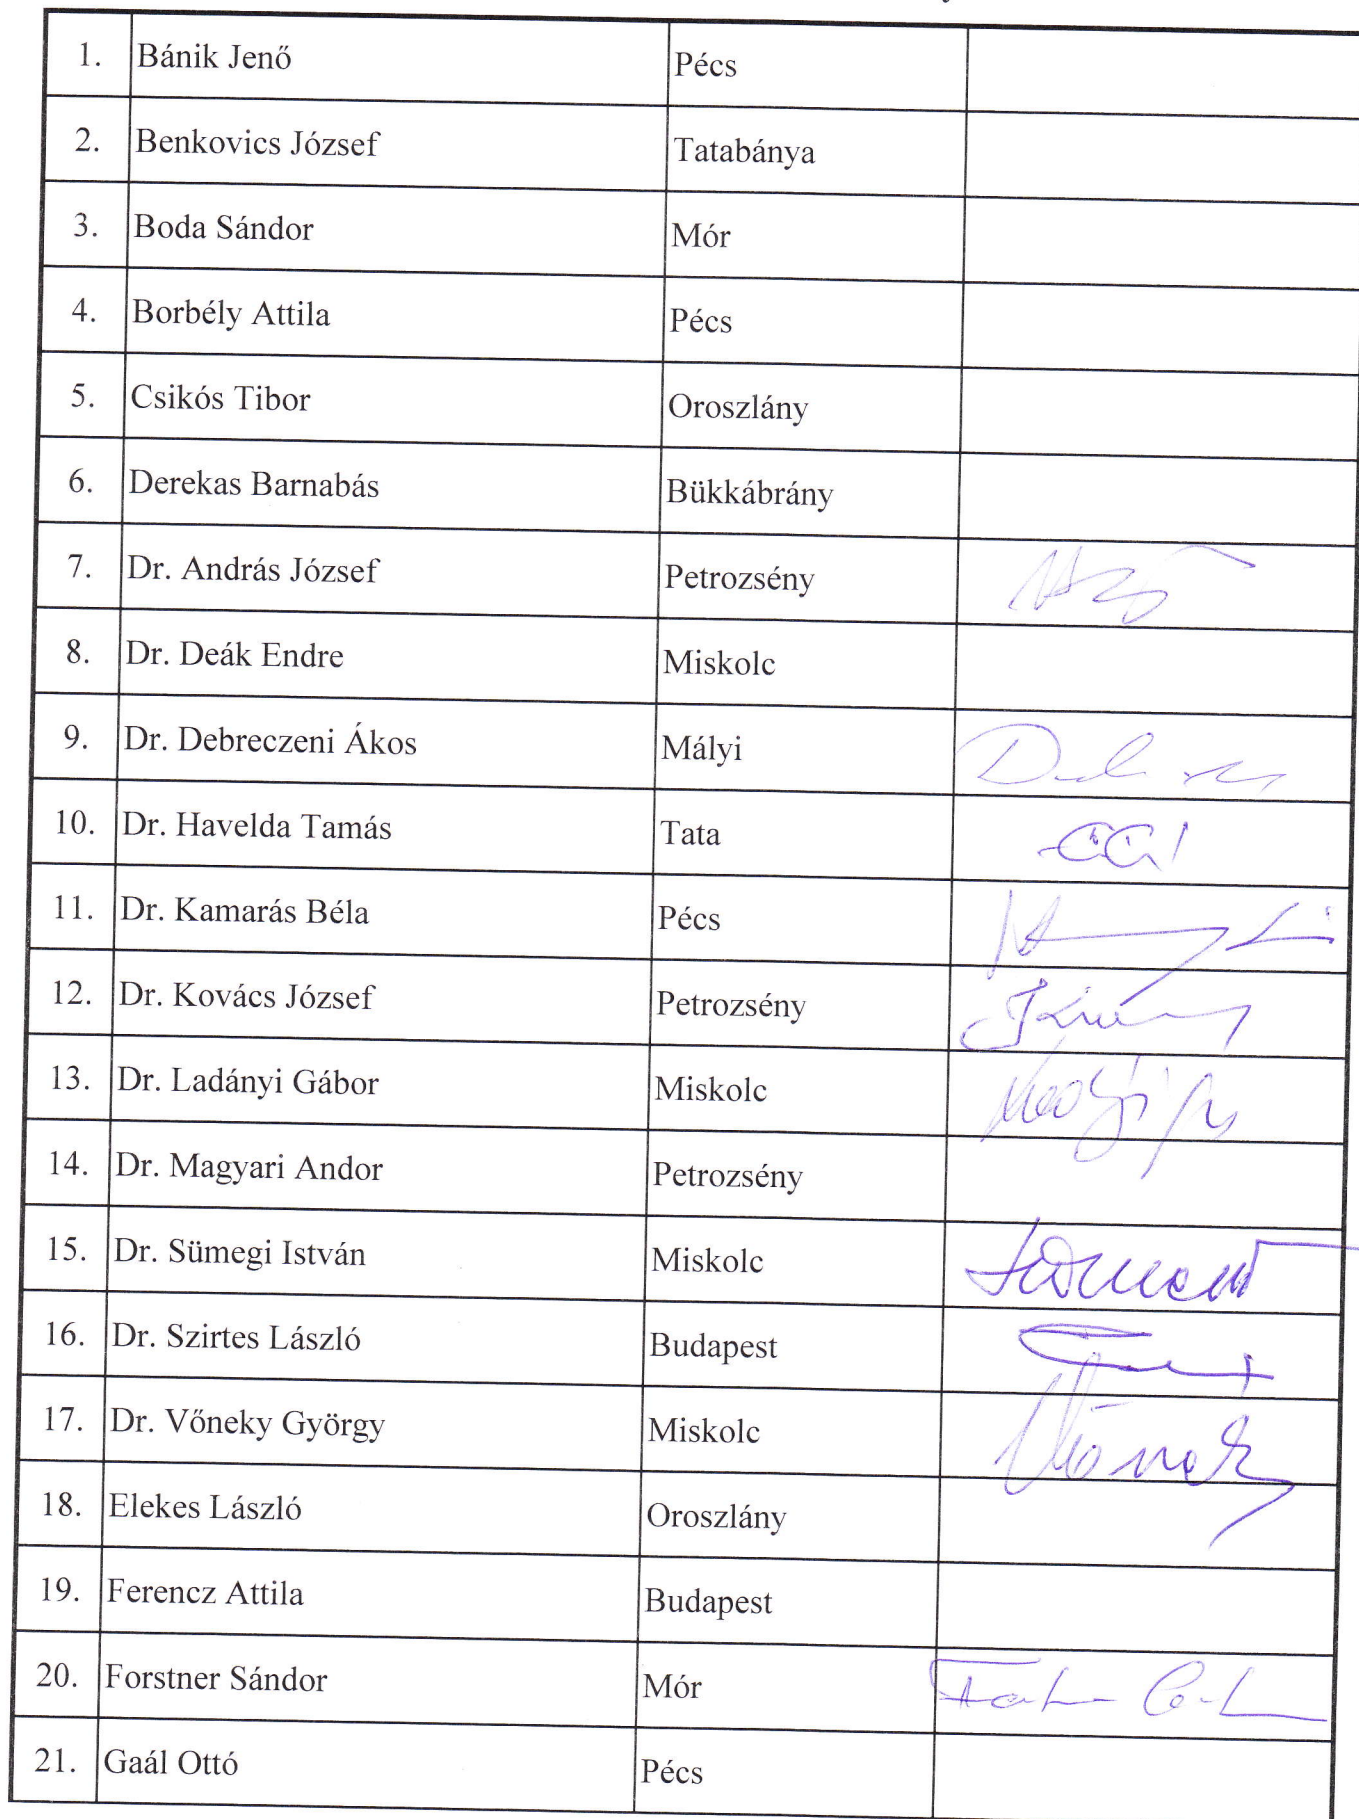 1. Bánik Jenő Pécs
2. Benkovics József Tatabánya
3. Boda Sándor Mór
4. Borbély Attila Pécs
5. Csikós Tibor Oroszlány
6. Derekas Barnabás Bükkábrány
7. Dr. András József Petrozsény
8. Dr. Deák Endre Miskolc
9. Dr. Debreczeni Ákos Mályi
10. Dr. Havelda Tamás Tata
11. Dr. Kamarás Béla Pécs
12. Dr. Kovács József Petrozsény
13. Dr. Ladányi Gábor Miskolc
14. Dr. Magyari Andor Petrozsény
15. Dr. Sümegi István Miskolc
16. Dr. Szirtes László Budapest
17. Dr. Vőneky György Miskolc
18. Elekes László Oroszlány
19. Ferencz Attila Budapest
20. Forstner Sándor Mór
21. Gaál Ottó Pécs